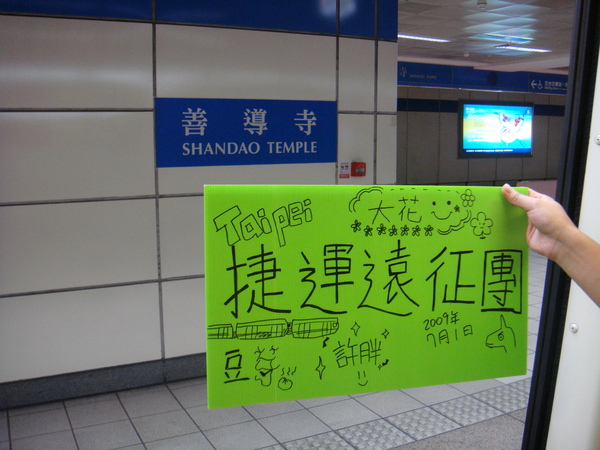 善導寺
SHANDAO TEMPLE
Taipei
大花
捷運遠征團
豆芽
許胖
2009年
7月1日